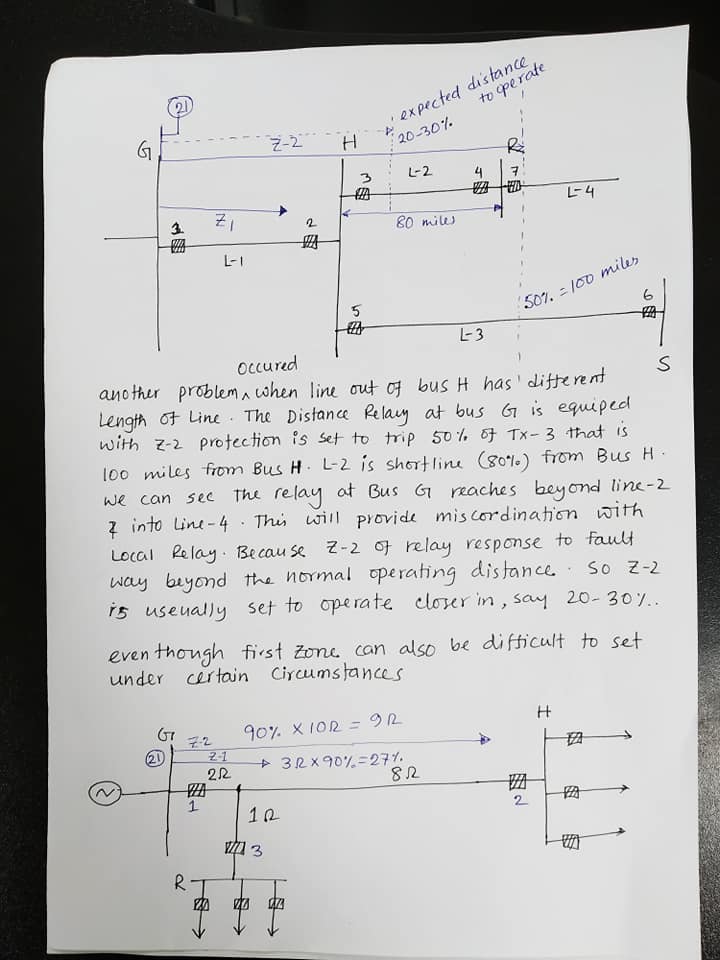 21
expected distance
to operate
G
Z-2
H
20-30%
R
3
L-2
4
7
L-4
Z1
1
2
80 miles
L-1
50% = 100 miles
5
6
L-3
S
occured
another problem ^ when line out of bus H has different
Length of Line. The Distance Relay at bus G is equiped
with Z-2 protection is set to trip 50% of Tx-3 that is
100 miles from Bus H. L-2 is short line (80%) from Bus H.
we can see The relay at Bus G reaches beyond line-2
& into Line-4. This will provide miscordination with
Local Relay. Because Z-2 of relay response to fault
way beyond the normal operating distance. So Z-2
is useually set to operate closer in, say 20-30%..
even though first Zone can also be difficult to set
under certain Circumstances
G
H
Z-2
90% X 10Ω = 9Ω
21
Z-1
3Ω X 90% = 27%
2Ω
8Ω
1
2
1Ω
3
R